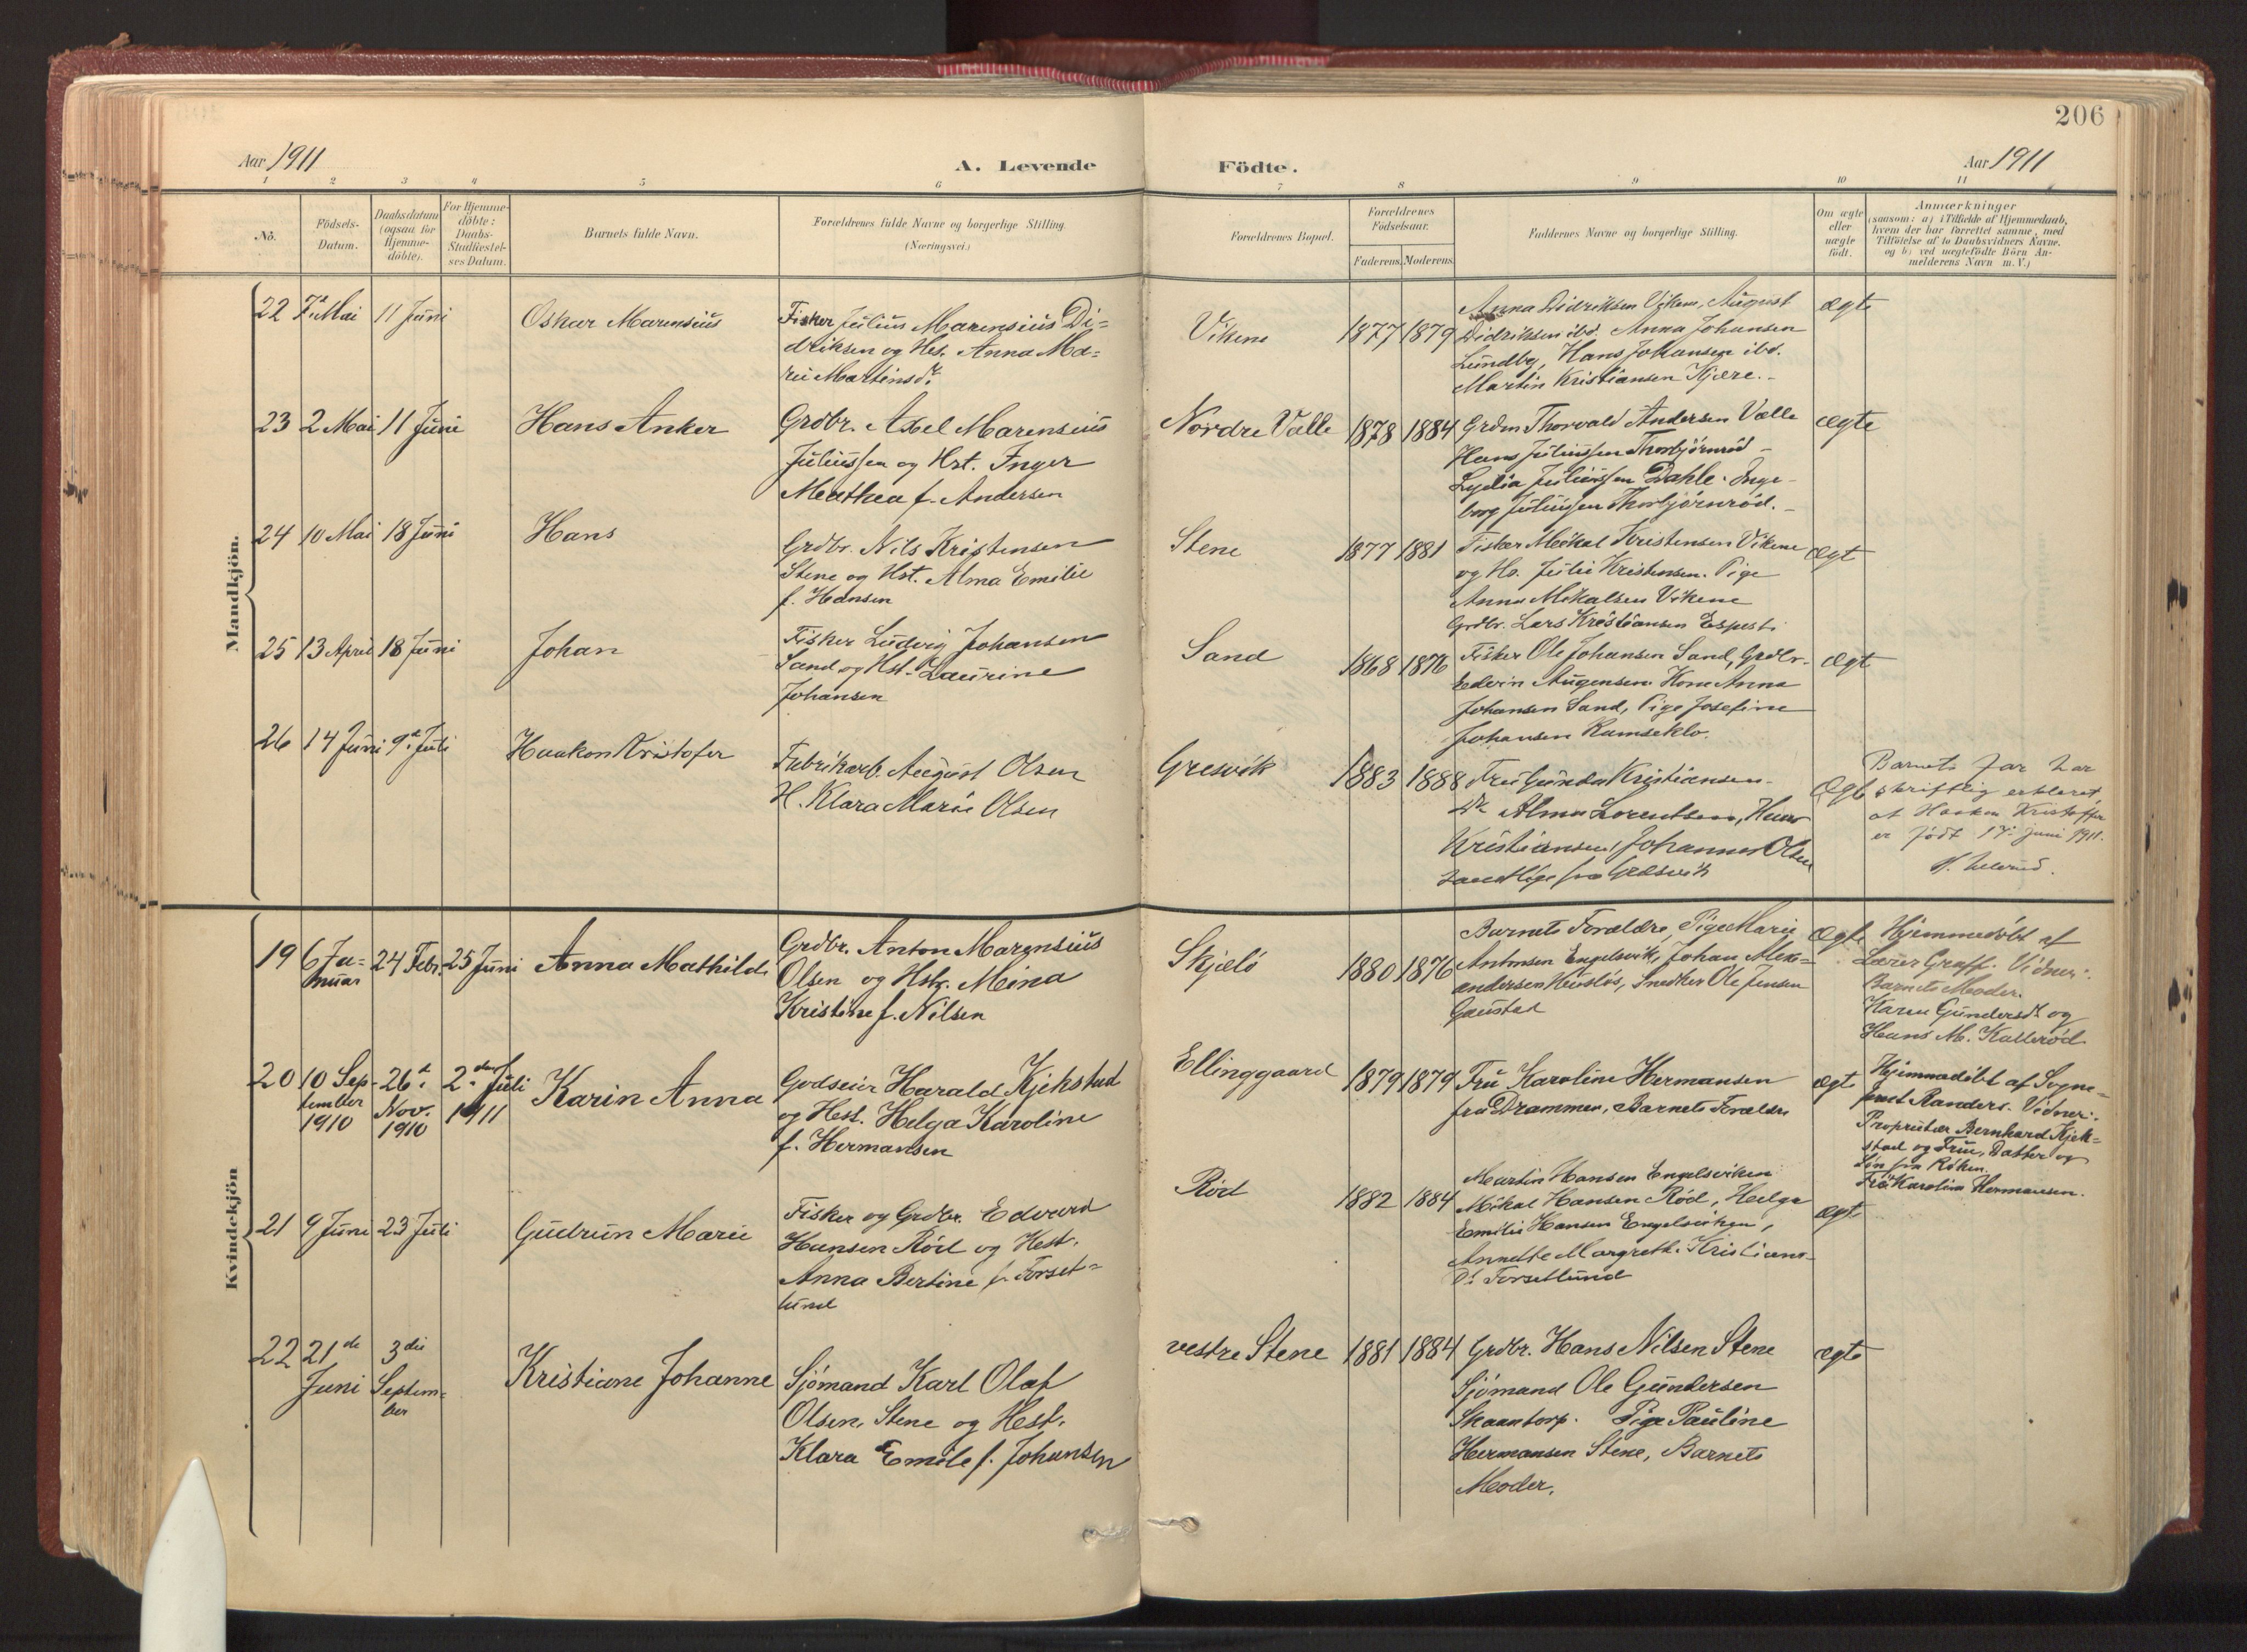 206
Aar 1911
A. Levende
Födte.
Aar 1911
1 2 3 4 5 6 7 8 9 10 11
No.
Födsels-
Datum.
Daabsdatum
(ogsaa for
Hjemme-
döbte).
For Hjemme-
döbte:
Daabs-
Stadfæstel-
ses Datum.
Barnets fulde Navn.
Forældrenes fulde Navne og borgerlige Stilling.
(Næringsvei.)
Forældrenes Bopæl.
Forældrenes
Födselsaar.
Faderens.
Moderens.
Faddernes Navne og borgerlige Stilling.
Om ægte
eller
uægte
födt.
Anmærkninger
(saasom: a) i Tilfælde af Hjemmedaab,
hvem der har forrettet samme, med
Tilföielse af to Daabsvidners Navne.
og b) ved uægtefödte Börn An-
melderens Navn m. V.)
Mandkjön.
22 7de Mai 11 Juni Oskar Marensius
Fisker Julius Marensius Di=
driksen og Hst. Anna Ma=
rie Martinsdr.
Vikene 1877 1879
Anna Didriksen Vikene, August
Didriksen ibd. Anna Johansen
Lundby, Hans Johansen ibd.
Martin Kristiansen Kjære.
ægte
23 2 Mai 11 Juni Hans Anker
Grdbr. Axel Marensius
Juliussen og Hst. Inger
Mathea f. Andersen
Nordre Valle 1878 1884
Grdm Thorvald Andersen Valle
Hans Juliussen Thorbjörnröd
Lydia Juliussen Dahle. Inge-
borg Juliussen Thorbjörnröd.
ægte
24 10 Mai 18 Juni Hans
Grdbr. Nils Kristensen
Stene og Hst. Alma Emilie
f. Hansen
Stene 1877 1881
Fisker Mikal Kristensen Vikene
og Hs. Julie Kristensen. Pige
Anna Mikalsen Vikene
Grdbr. Lars Kristiansen
ægt
25 13 April 18 Juni Johan
Fisker Ludvig Johansen
Sand og Hst. Laurine
Johansen
Sand 1868 1876
Fisker Ole Johansen Sand, Grdbr.
Edvin Augensen. Kone Anna
Johansen Sand, Pige Josefine
Johansen Ramseklo.
ægt
26 14 Juni 9de Juli Haakon Kristofer
Fabrikarb. August Olsen
H. Klara Marie Olsen
Gresvik 1883 1888
Fru Gunda Kristiansen
Alma Lorentsen, Hans
Kristiansen, Johannes Olsen
samtlige fra Gresvik
ægte
Barnets far har
skriftlig erklæret,
at Haakon Kristoffer
er født 17. juni 1911.
Kvindekjön
19 6 Ja=
nuar 24 Febr. 25 Juni Anna Mathilde
Grdbr. Anton Marensius
Olsen og Hst. Meina
Kristine f. Nilsen
Skjælö 1880 1876
Barnets Forældre, Pige Marie
Antonsen Engelsvik, Johan Alex=
andersen Huslös, Snedker Ole Jensen
Gaustad
ægte
Hjemmedöbt af
Lærer Graff. Vidner:
Barnets Moder.
Karen Gundersdr. og
Hans M. Kalleröd.
20 10 Sep-
tember
1910
26de
Nov.
1910
2den Juli
1911
Karin Anna
Godseier Harald Kjekstad
og Hst. Helga Karoline
f. Hermansen
Ellinggaard 1879 1879
Fru Karoline Hermansen
fra Drammen, Barnets Forældre
ægte
Hjemmedöbt af Sogne-
prest Randers. Vidner:
Proprietær Bernhard Kjek=
stad og Frue, Datter og
Sön fra Röken.
Fru Karoline Hermansen.
21 9 Juni 23 Juli Gudrun Marie
Fisker og Grdbr. Edvard
Hansen Röd og Hst.
Anna Bertine f. Torset=
lund
Röd 1882 1884
Martin Hansen Engelsviken
Mikal Hansen Röd, Helga
Emilie Hansen Engelsviken,
Annette Margrethe Kristians-
Dr. Torsetlund
ægte
22 21de
Juni
3die
Septem=
ber
Kristiane Johanne
Sjömand Karl Olaf
Olsen, Stene og Hst.
Klara Emilie f. Johansen
vestre Stene 1881 1884
Grdbr. Hans Nilsen Stene
Sjömand Ole Gundersen
Skaantorp. Pige Pauline
Hermansen Stene, Barnets
Moder.
ægte